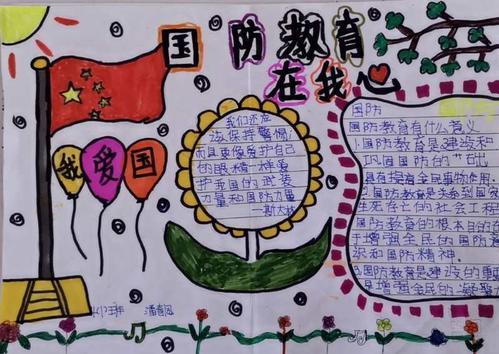 国防教育
在我心
我爱国
我们还应
该保持警惕,
而且要像爱护自己
的眼睛一样爱
护我国的武装
力量和国防力量
—斯大林
国防
国防教育有什么意义
1.国防教育是建设和
巩固国防的基础
具有提高全民
2国防教育是关系到国家
生死存亡的社会工程
国防教育的根本目的在
于增强全民的国防意
识和国防精神.
3国防教育是建设的重
是增强全民的凝聚力